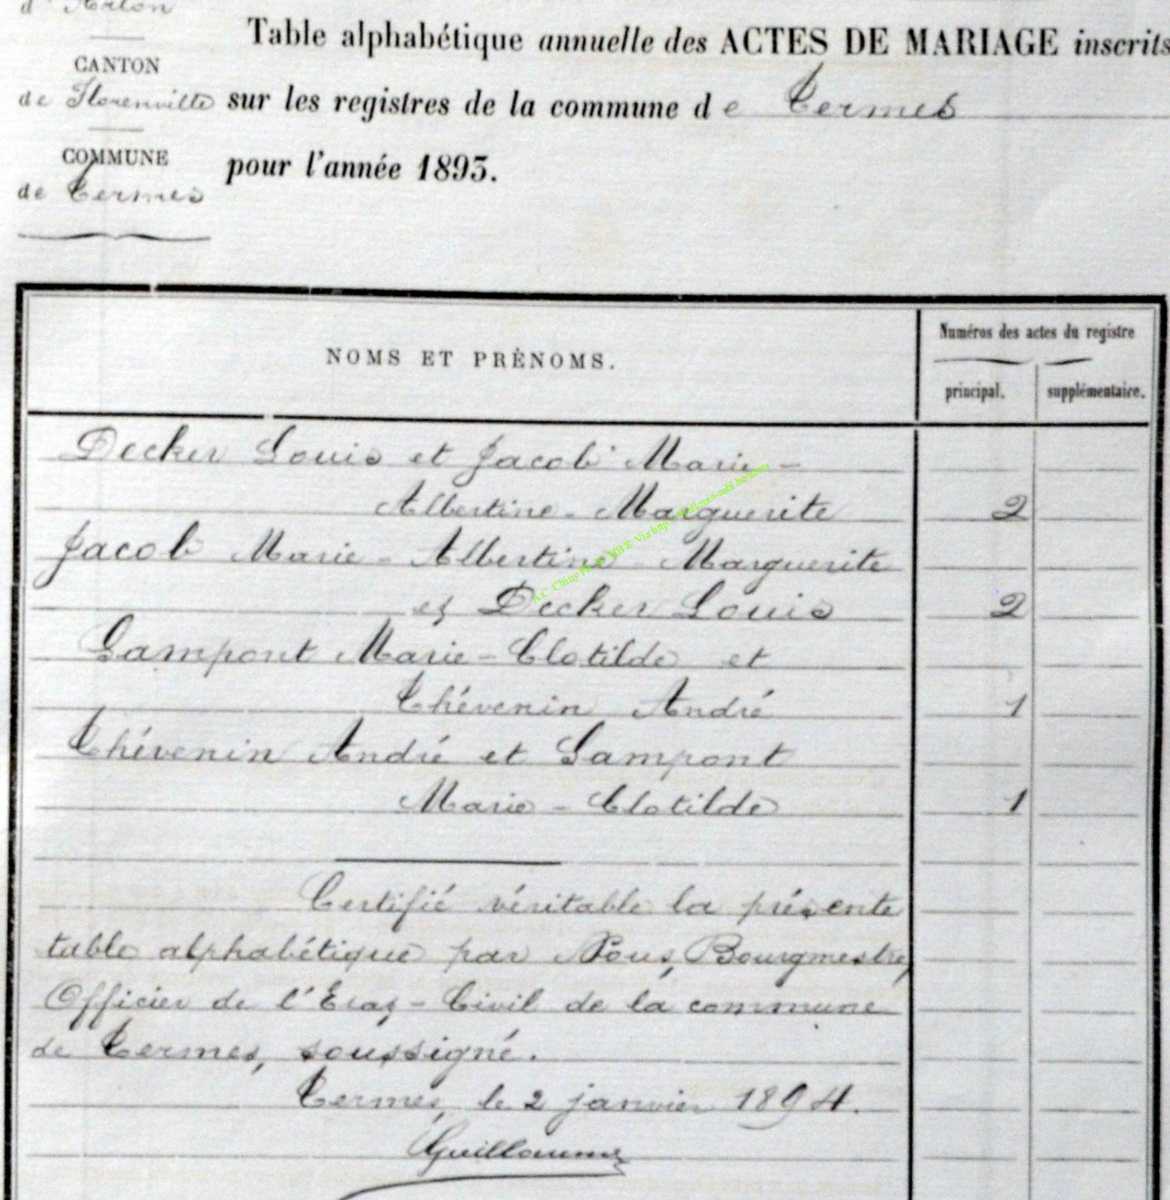 d'Arlon
CANTON
de Florenville
COMMUNE
de Termes
Table alphabétique annuelle des ACTES DE MARIAGE inscrits
sur les registres de la commune de Termes
pour l'année 1893.
NOMS ET PRÉNOMS.
Numéros des actes du registre
principal. supplémentaire.
Decker Louis et Jacob Marie-
Albertine-Marguerite 2
Jacob Marie-Albertine-Marguerite
et Decker Louis 2
Lampont Marie-Clotilde et
Thévenin André 1
Thévenin André et Lampont
Marie-Clotilde 1
Certifié véritable la présente
table alphabétique par Nous, Bourgmestre,
Officier de l'Etat-Civil de la commune
de Termes, soussigné.
Termes, le 2 janvier 1894.
Guillaume